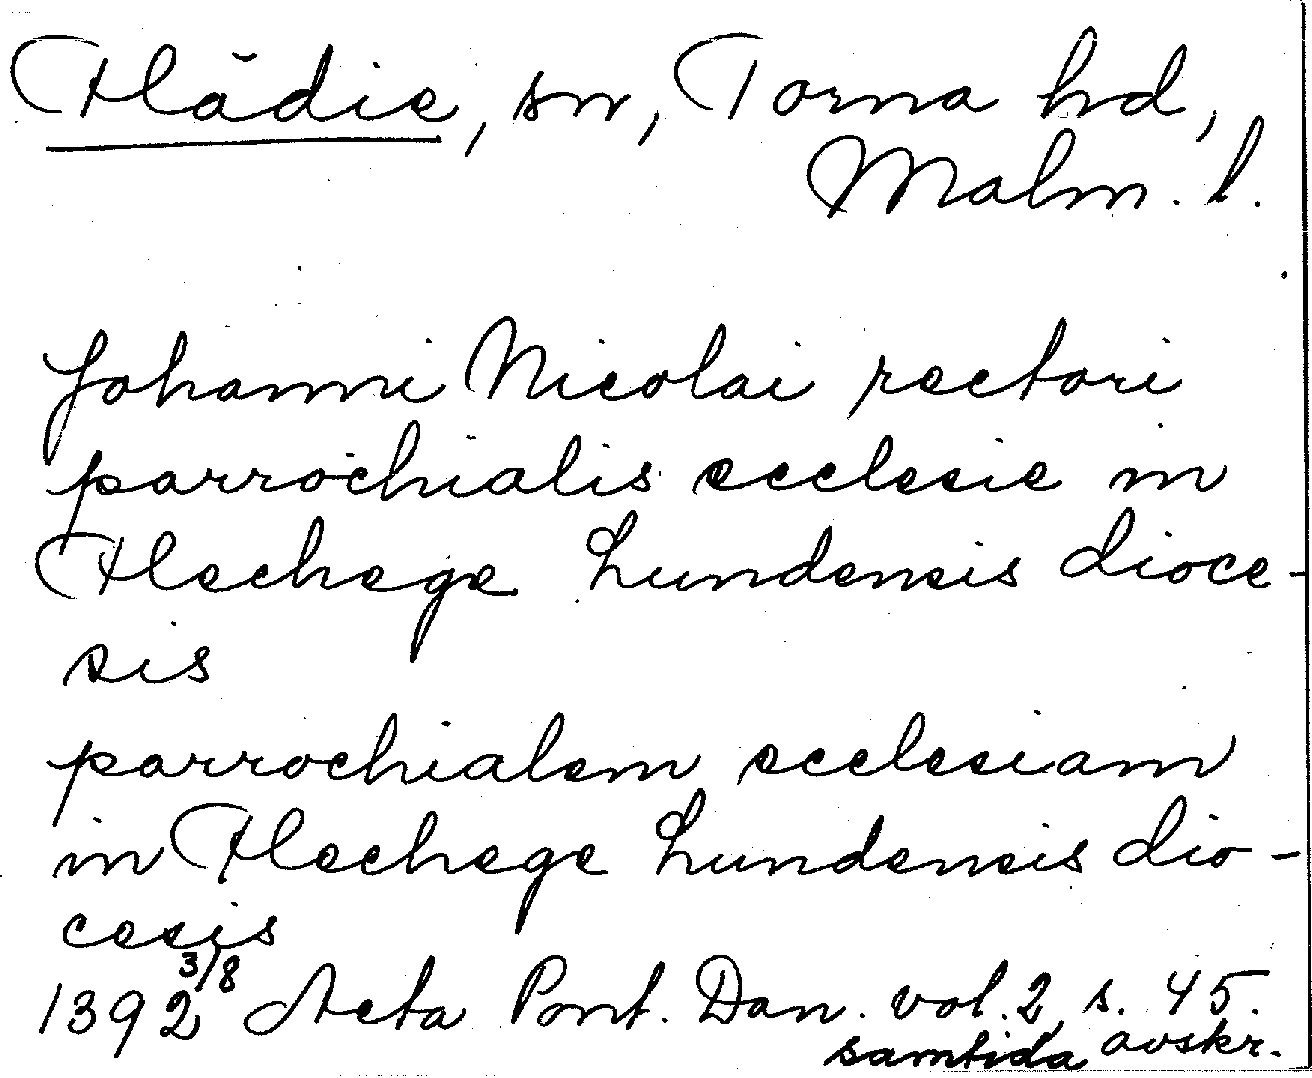 Flädie, sn, Torna hd,
Malm. l.
Johanni Nicolai rectori
parrochialis ecclesie in
Flechege Lundensis dioce-
sis
parrochialem ecclesiam
in Flechege Lundensis dio-
cesis
1392 3/8 Acta Pont. Dan. vol. 2, s. 45.
samtida avskr.